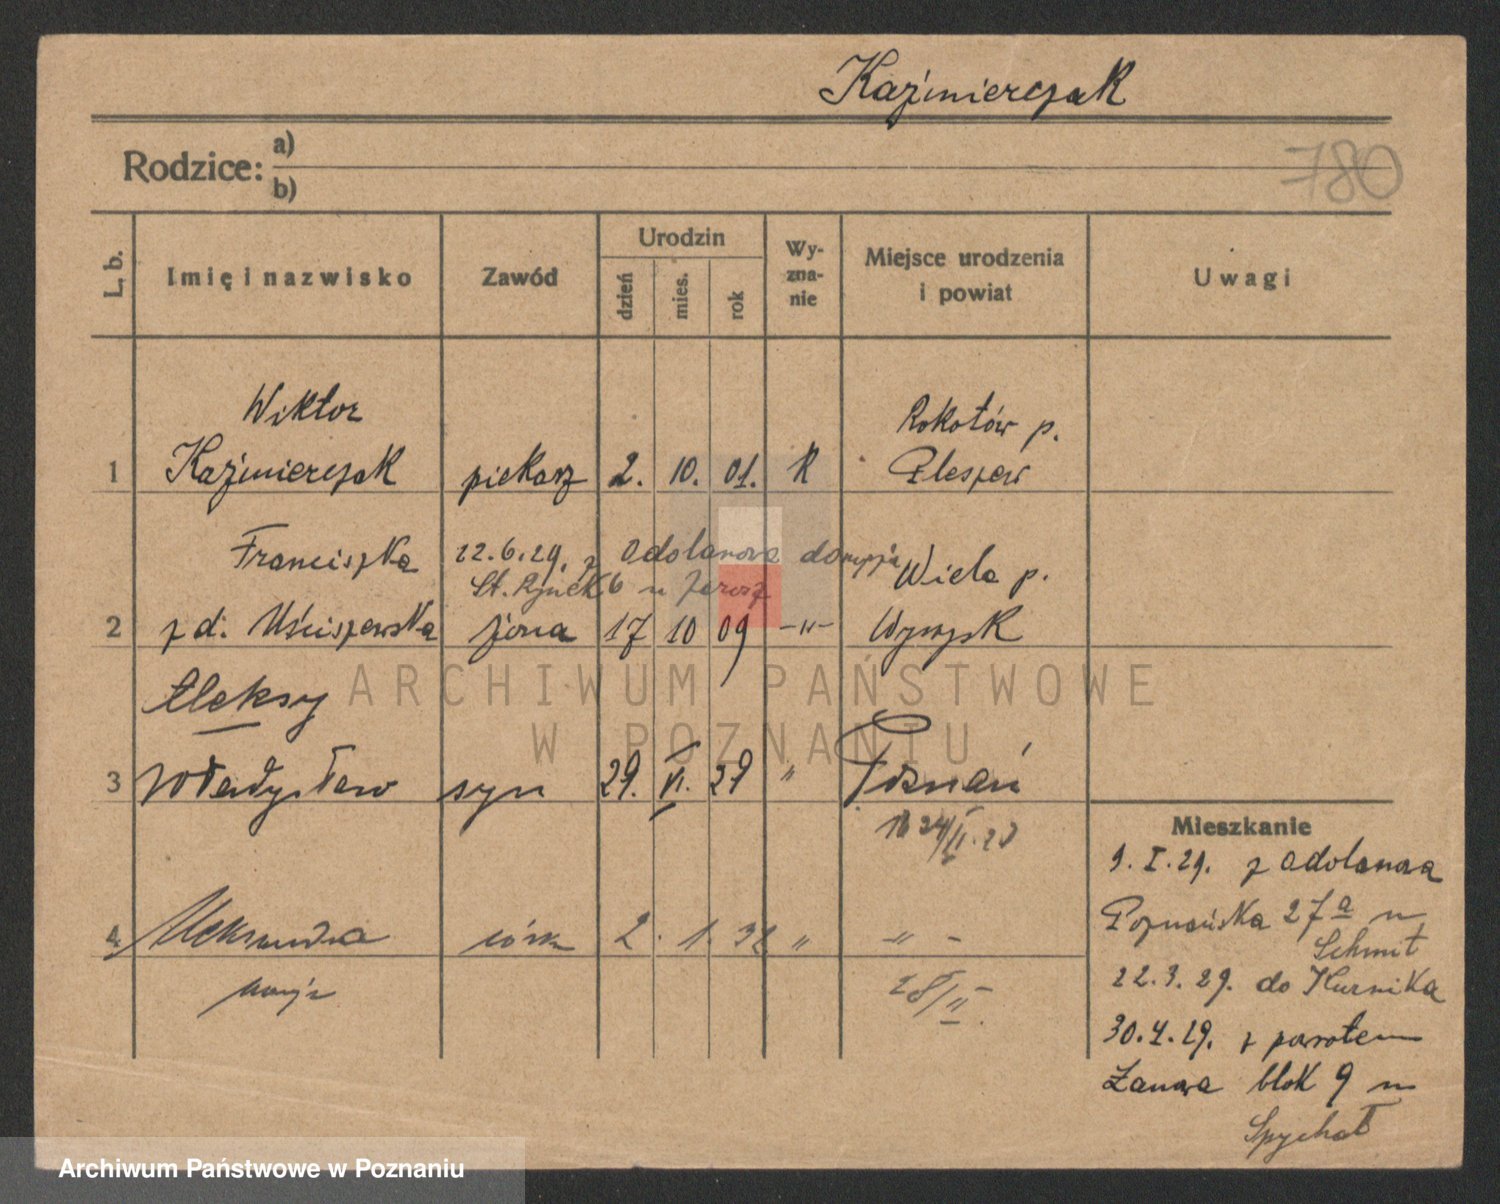 Kaźmierczak
780
Rodzice:
a)
b)
L. b.
Imię i nazwisko
Zawód
Urodzin
dzień
mies.
rok
Wy-
zna-
nie
Miejsce urodzenia
i powiat
Uwagi
Wiktor
Rokotów p.
1 Kaźmierczak piekarz 2. 10. 01. K Pleszew
Franciszka 22.6.29. z Adolanowa
St. Rynek 6 u Jarosz
Wiela p.
2 z d. Uściszewska żona 17 10 09 -"- Wyrzysk
Aleksy
3 Władysław syn 29. VI. 29 " Poznań
4 Aleksandra córka 2. 1. 32 " " -
28/II.
Mieszkanie
9. I. 29. z Adolanowa
Poznańska 27a u
Schmit
22.3.29. do Kurnika
30.4.29. z powrotem
Łanowa blok 9 u
Spychał
ARCHIWUM PAŃSTWOWE
W POZNANIU
Archiwum Państwowe w Poznaniu